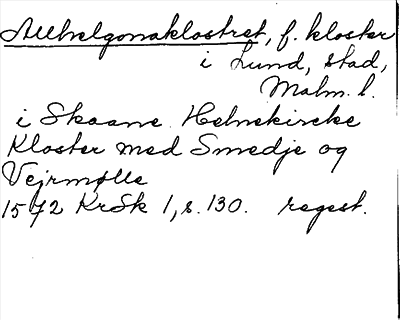 Allhelgonaklostret, f. kloster
i Lund, stad,
Malm. l.
i Skaane Helnekircke
Kloster med Smedje og
Vejrmølle
1572 KrSk 1, s. 130. regest.